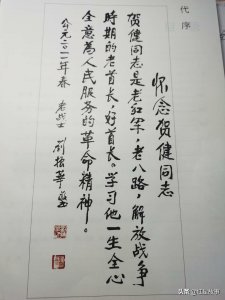 代序
怀念贺健同志
贺健同志是老红军,老八路,解放战争
時期的老首长,好首长。学习他一生全心
全意為人民服务的革命精神。
公元二〇一一年春 老战士 劉振華